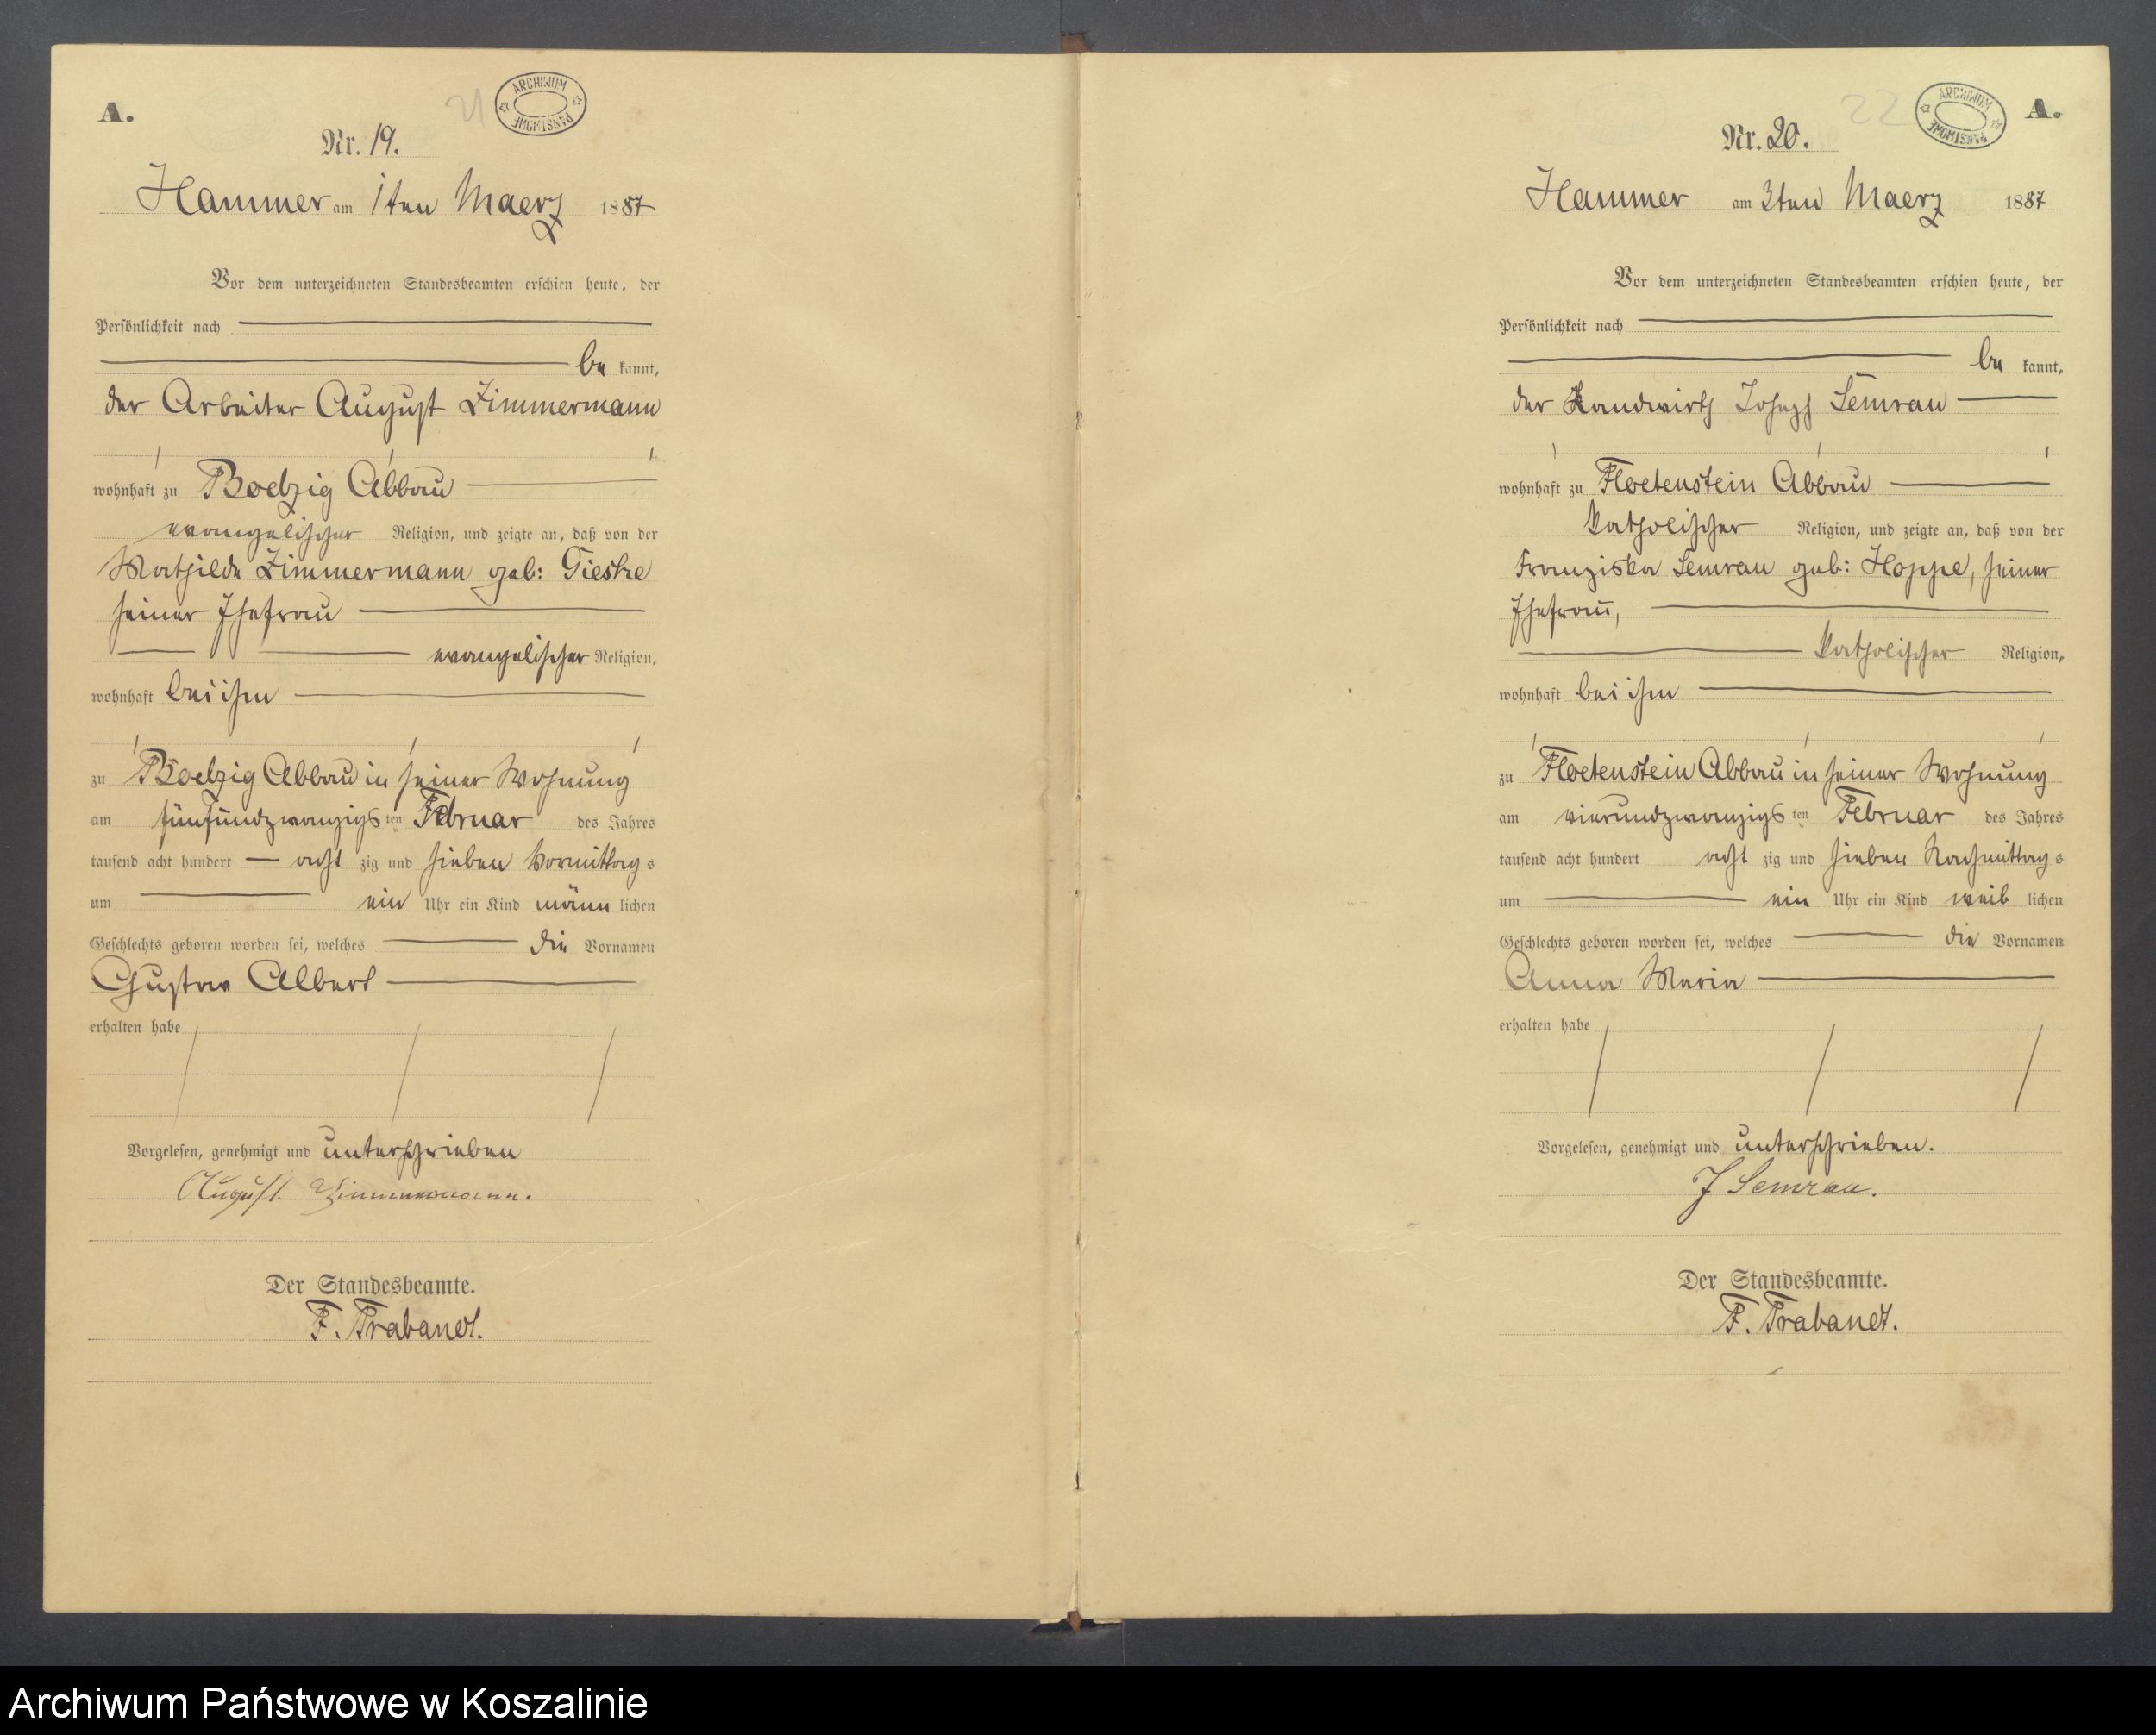 A.
21
ARCHIWUM PAŃSTWOWE
Nr. 19.
Hammer am 1ten Maerz 1887
Vor dem unterzeichneten Standesbeamten erschien heute, der
Persönlichkeit nach
be kannt,
der Arbeiter August Zimmermann
wohnhaft zu Boelzig Abbau
evangelischer Religion, und zeigte an, daß von der
Mathilde Zimmermann geb: Gieske
seiner Ehefrau
evangelischer Religion,
wohnhaft bei ihm
zu Boelzig Abbau in seiner Wohnung
am fünfundzwanzigs ten Februar des Jahres
tausend acht hundert acht zig und sieben Vormittag s
um ein Uhr ein Kind männ lichen
Geschlechts geboren worden sei, welches die Vornamen
Gustav Albert
erhalten habe
Vorgelesen, genehmigt und unterschrieben
August Zimmermann.
Der Standesbeamte.
F. Trabandt.
22
ARCHIWUM PAŃSTWOWE
A.
Nr. 20.
Hammer am 3ten Maerz 1887
Vor dem unterzeichneten Standesbeamten erschien heute, der
Persönlichkeit nach
be kannt,
der Landwirth Joseph Semrau
wohnhaft zu Floetenstein Abbau
katholischer Religion, und zeigte an, daß von der
Franziska Semrau geb: Hoppe, seiner
Ehefrau,
katholischer Religion,
wohnhaft bei ihm
zu Floetenstein Abbau in seiner Wohnung
am vierundzwanzigs ten Februar des Jahres
tausend acht hundert acht zig und sieben Nachmittag s
um ein Uhr ein Kind weib lichen
Geschlechts geboren worden sei, welches die Vornamen
Anna Maria
erhalten habe
Vorgelesen, genehmigt und unterschrieben.
J Semrau.
Der Standesbeamte.
F. Trabandt.
Archiwum Państwowe w Koszalinie